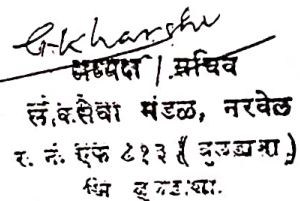 G.Kharshe
अध्यक्ष / सचिव
ल.क.सेवा मंडळ, नरवेल
र. नं. एफ ८१३ ( बुलडाणा )
जि बुलडाणा.